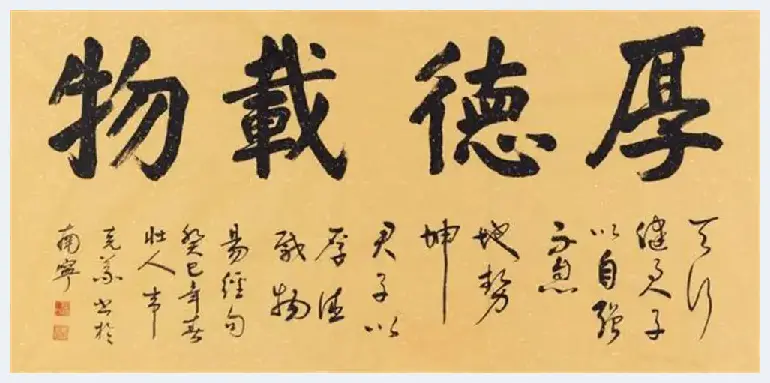 厚德載物
天行
健君子
以自強
不息
地勢
坤
君子以
厚德
載物
易經句
癸巳年春
壯人韋
克義書於
南寧